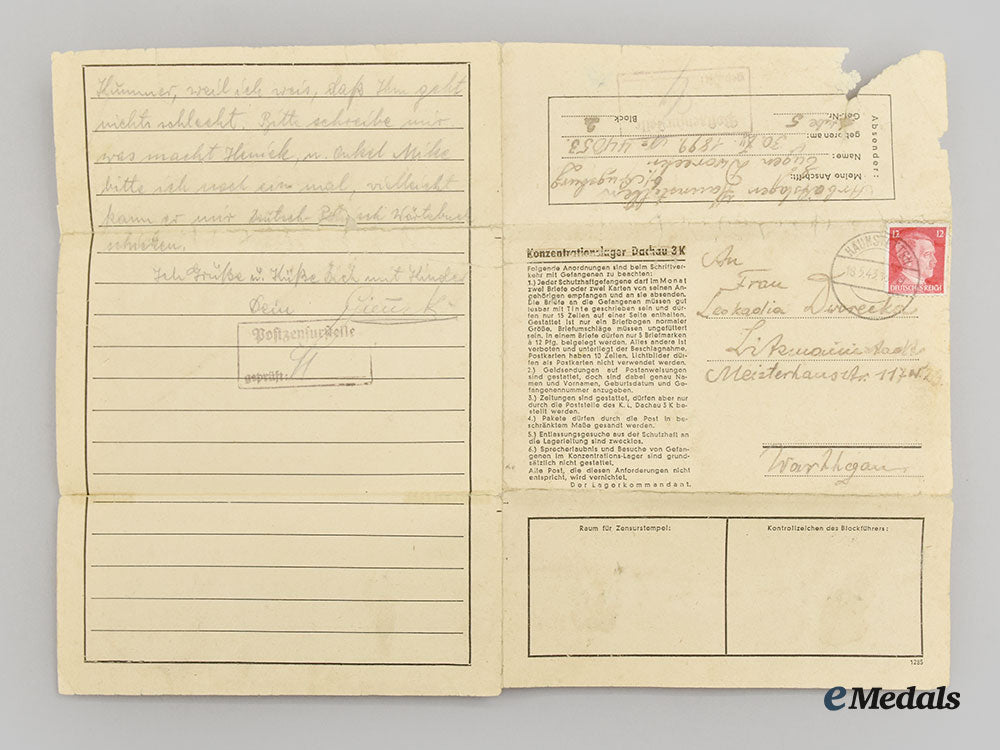 Kummer, weil ich weis, daß Ihm geht
nichts schlecht. Bitte schreibe mir
was macht Heniek, u. onkel Mike
bitte ich noch ein mal, vielleicht
kann er mir deutsch Wörtebuch
schicken.
Ich Grüße u. Küße Dich mit Kinder
Dein
Postzensurstelle
geprüft:
Absender:
Meine Anschrift:
Arbeitslager Haunstetten
b/Augsburg
Name: Eugen Dworecki
geboren am: 30. 1899 44053
Gef.-Nr.
Stube 5 Block 2
Postzensurstelle
geprüft:
Konzentrationslager Dachau 3 K
Folgende Anordnungen sind beim Schriftver-
kehr mit Gefangenen zu beachten:
1.) Jeder Schutzhaftgefangene darf im Monat
zwei Briefe oder zwei Karten von seinen An-
gehörigen empfangen und an sie absenden.
Die Briefe an die Gefangenen müssen gut
lesbar mit Tinte geschrieben sein und dür-
fen nur 15 Zeilen auf einer Seite enthalten.
Gestattet ist nur ein Briefbogen normaler
Größe. Briefumschläge müssen ungefüttert
sein. In einem Briefe dürfen nur 5 Briefmarken
à 12 Pfg. beigelegt werden. Alles andere ist
verboten und unterliegt der Beschlagnahme.
Postkarten haben 10 Zeilen. Lichtbilder dür-
fen als Postkarten nicht verwendet werden.
2.) Geldsendungen auf Postanweisungen
sind gestattet, doch sind dabei genau Na-
men und Vornamen, Geburtsdatum und Ge-
fangenennummer anzugeben.
3.) Zeitungen sind gestattet, dürfen aber nur
durch die Poststelle des K. L. Dachau 3 K be-
stellt werden.
4.) Pakete dürfen durch die Post in be-
schränktem Maße gesandt werden.
5.) Entlassungsgesuche aus der Schutzhaft an
die Lagerleitung sind zwecklos.
6.) Sprecherlaubnis und Besuche von Gefan-
genen im Konzentrations-Lager sind grund-
sätzlich nicht gestattet.
Alle Post, die diesen Anforderungen nicht
entspricht, wird vernichtet.
Der Lagerkommandant.
An
Frau
Leokadia Dworecki
Litzmannstadt
Meisterhausstr. 117
Warthgau
HAUNSTETTEN
18.5.43
12 12
DEUTSCHES REICH
Raum für Zensurstempel:
Kontrollzeichen des Blockführers:
1285
eMedals